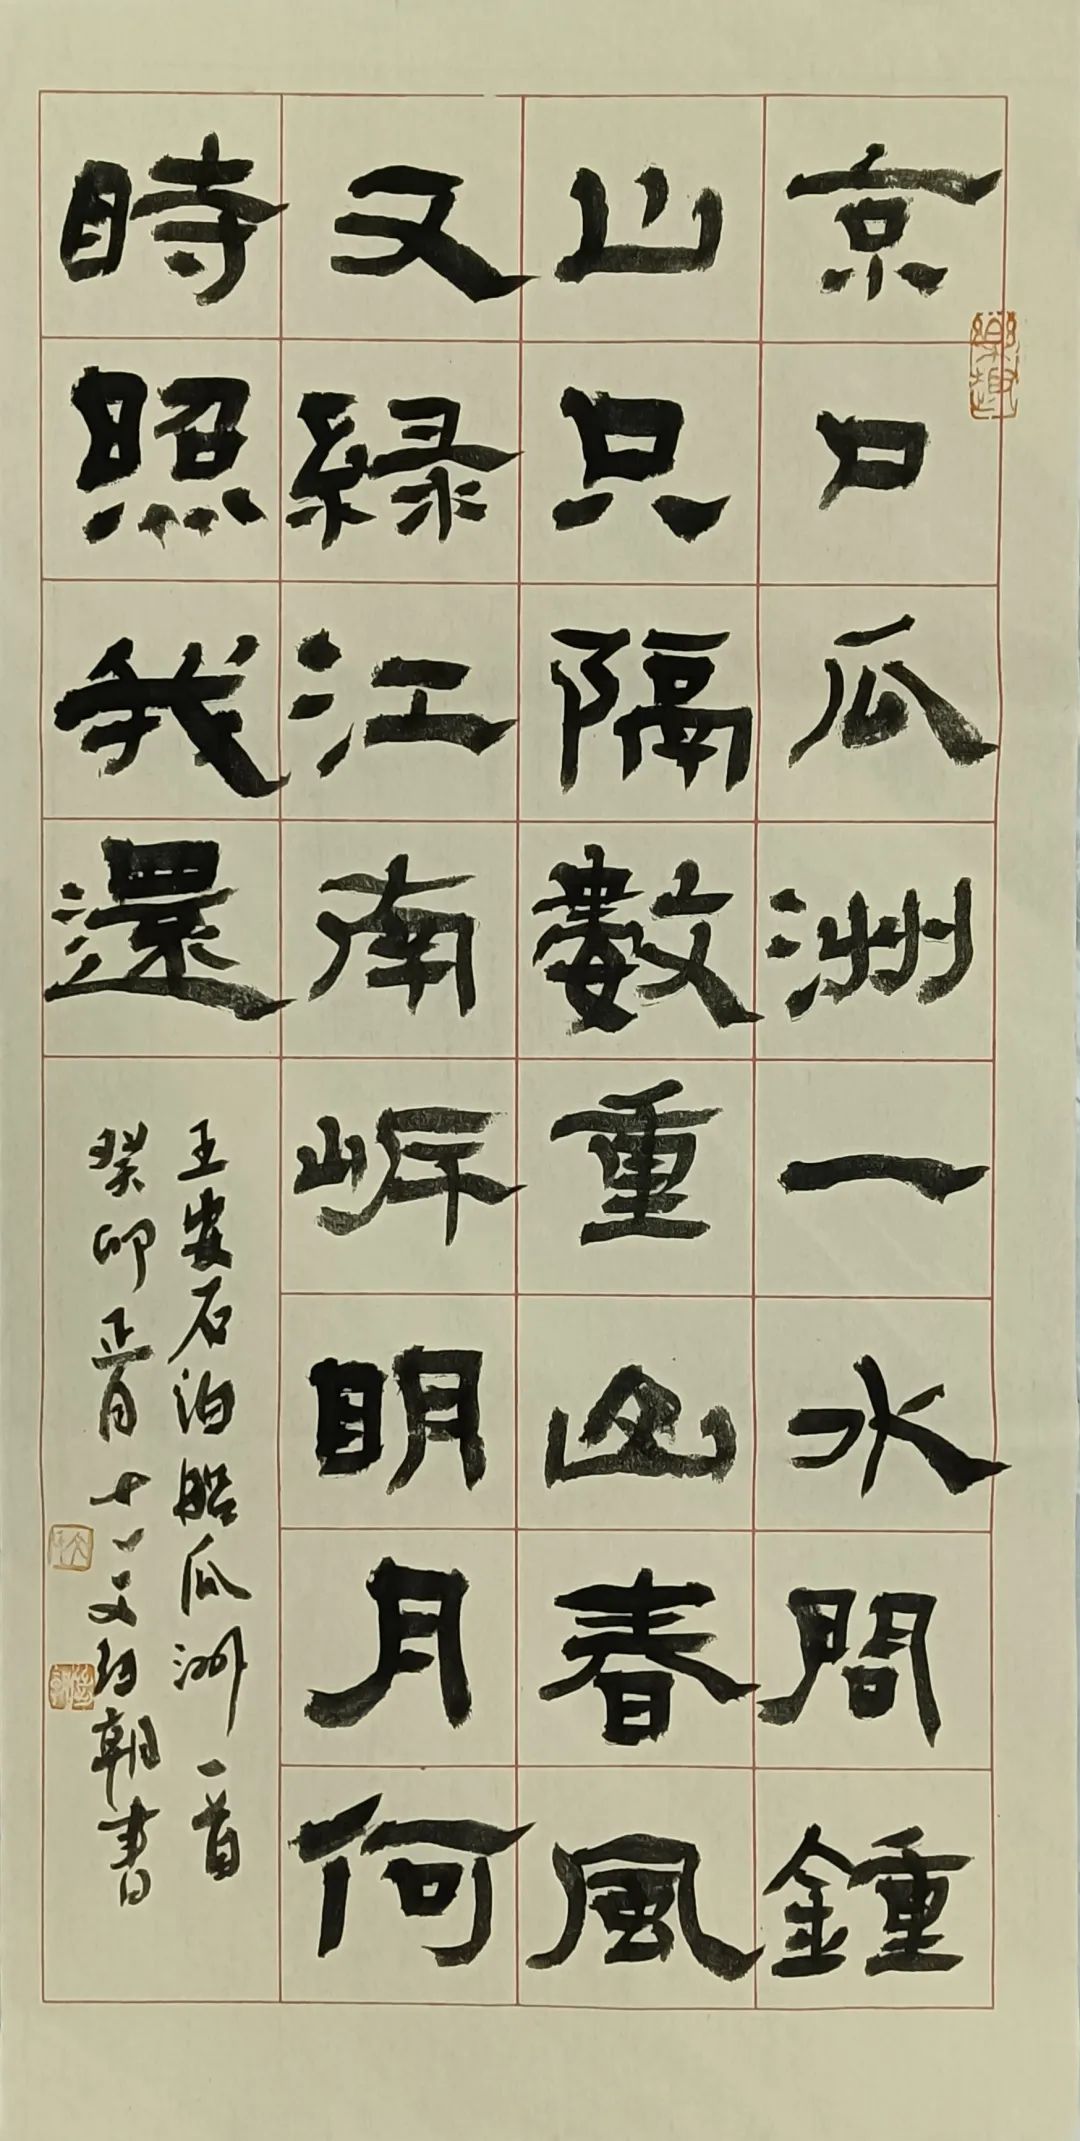 京口瓜洲一水問鍾
山只隔數重山春風
又綠江南岸明月何
時照我還
王安石泊船瓜洲一首
癸卯正月十一文朝書